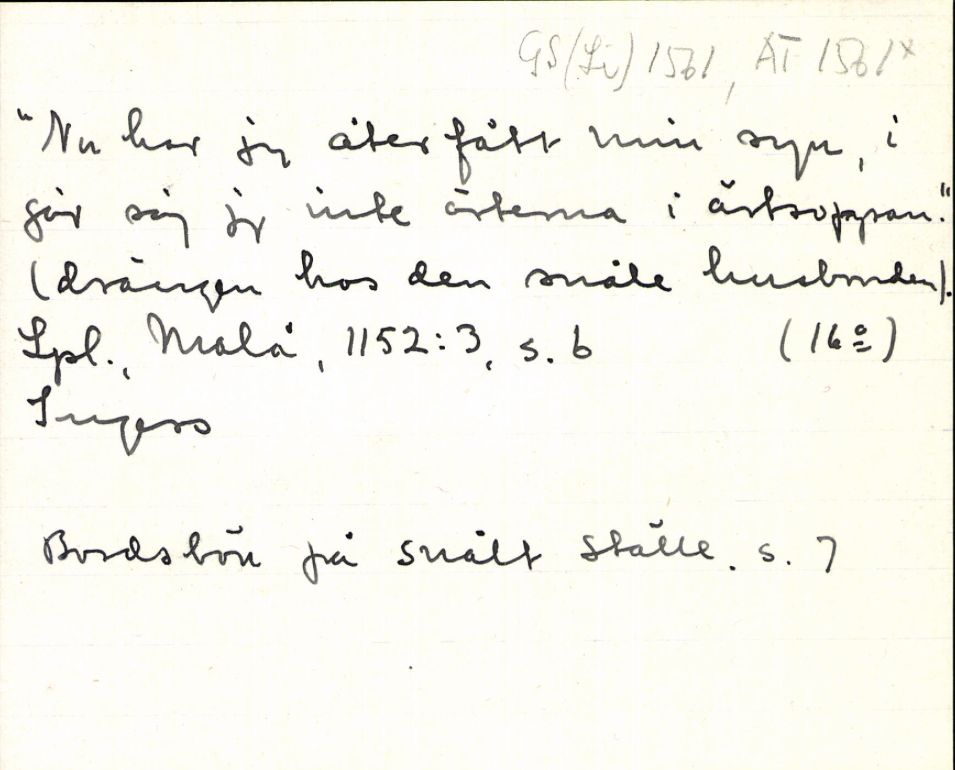 GS (Li) 1561, AT 1561x
"Nu har jag återfått min syn, i
går såg jag inte ärterna i ärtsoppan."
(drängen hos den snåle husbonden).
Lpl., Malå, 1152:3, s. 6 (16º)
Bordsbön på snålt ställe. s. 7